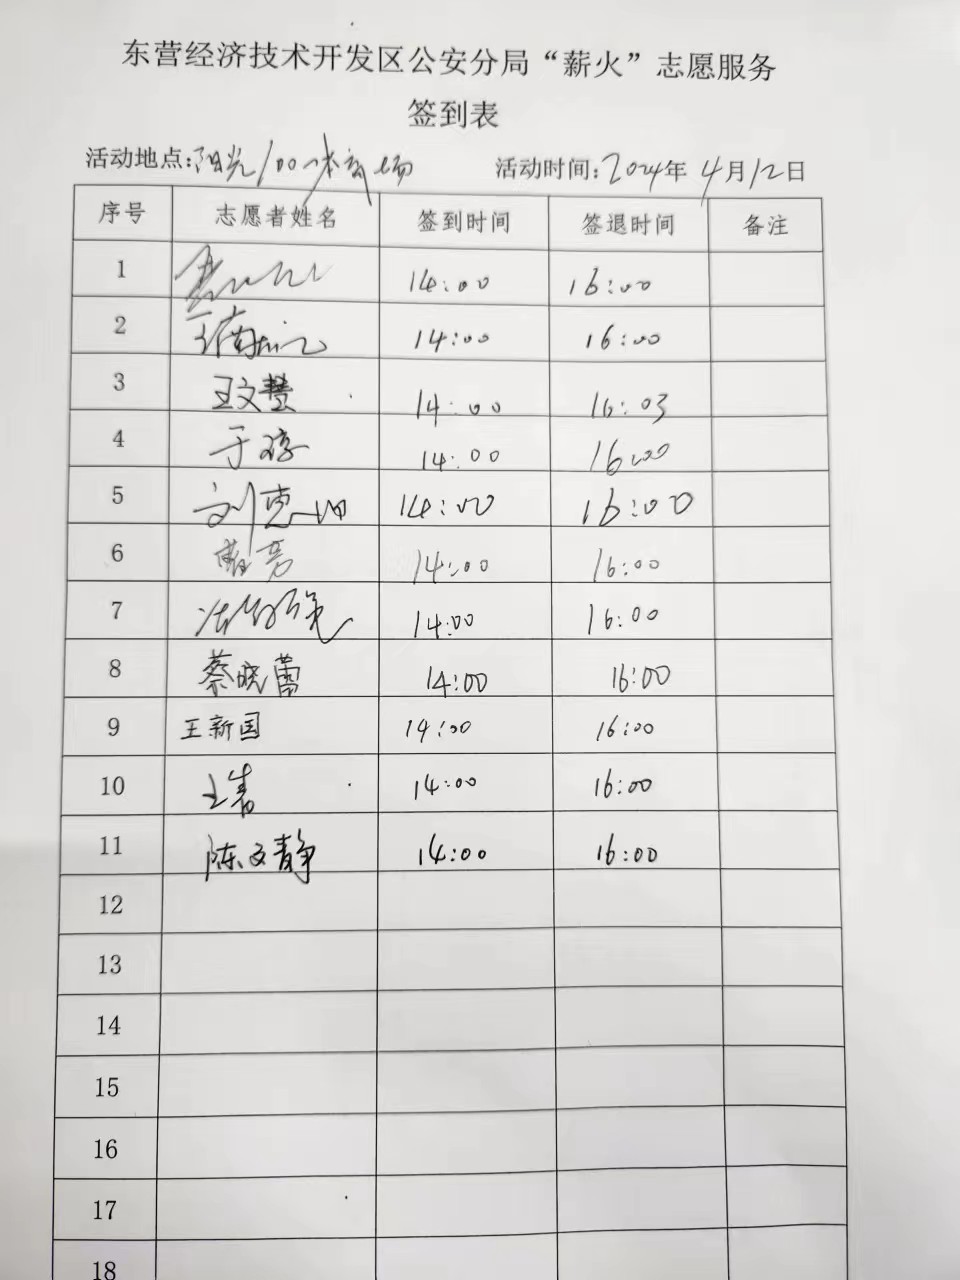 东营经济技术开发区公安分局“薪火”志愿服务
签到表
活动地点:阳光100体育场 活动时间:2024年4月12日
序号 志愿者姓名 签到时间 签退时间 备注
1 14:00 16:00
2 14:00 16:00
3 王文慧 14:00 16:03
4 于 14:00 16:00
5 刘惠 14:00 16:00
6 芳 14:00 16:00
7 14:00 16:00
8 蔡晓蕾 14:00 16:00
9 王新国 14:00 16:00
10 14:00 16:00
11 陈文静 14:00 16:00
12
13
14
15
16
17
18